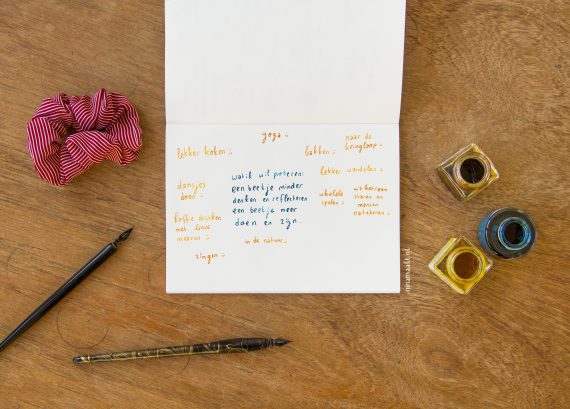 yoga
lekker koken
bakken
naar de
kringloop
wat ik wil proberen:
een beetje minder
denken en reflecteren
een beetje meer
doen en zijn.
dansjes
doen
koffie drinken
met lieve
mensen
zingen
in de natuur
lekker wandelen
ukulele
spelen
uit het raam
staren en
mensen
nakijken
ninamaakt.nl